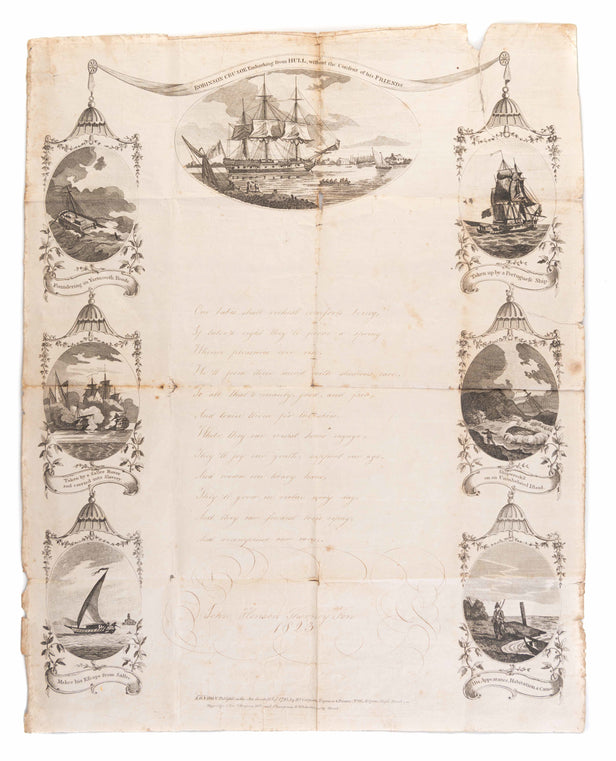 ROBINSON CRUSOE Embarking from HULL, without the Consent of his FRIENDS
Foundering in Yarmouth Roads
Taken up by a Portuguese Ship
Our babes shall richest comforts bring,
If tutor'd right they'll prove a spring
Whence pleasures ever rise;
We'll form their minds with studious care,
To all that's manly, good, and fair,
And train them for the skies.
While they our wisest hours engage,
They'll joy our youth, support our age,
And crown our hoary hairs,
They'll grow in virtue every day,
And they our fondest loves repay,
And recompense our cares.
Taken by a Sallee Rover
and carried into Slavery
on an Uninhabited Island
Makes his Escape from Sallee
His Appearance, Habitation, & Canoe
John
1823
LONDON